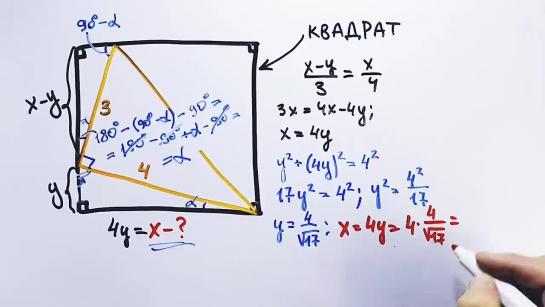 90°-α
КВАДРАТ
x-y
3
180°-(90°-α)-90°=
=180°-90°+α-90°=
=α
4
y
α
4y=x-?
(x-y)/3 = x/4
3x=4x-4y;
x=4y
y²+(4y)²=4²
17y²=4²; y²=4²/17
y=4/√17; x=4y=4·4/√17=